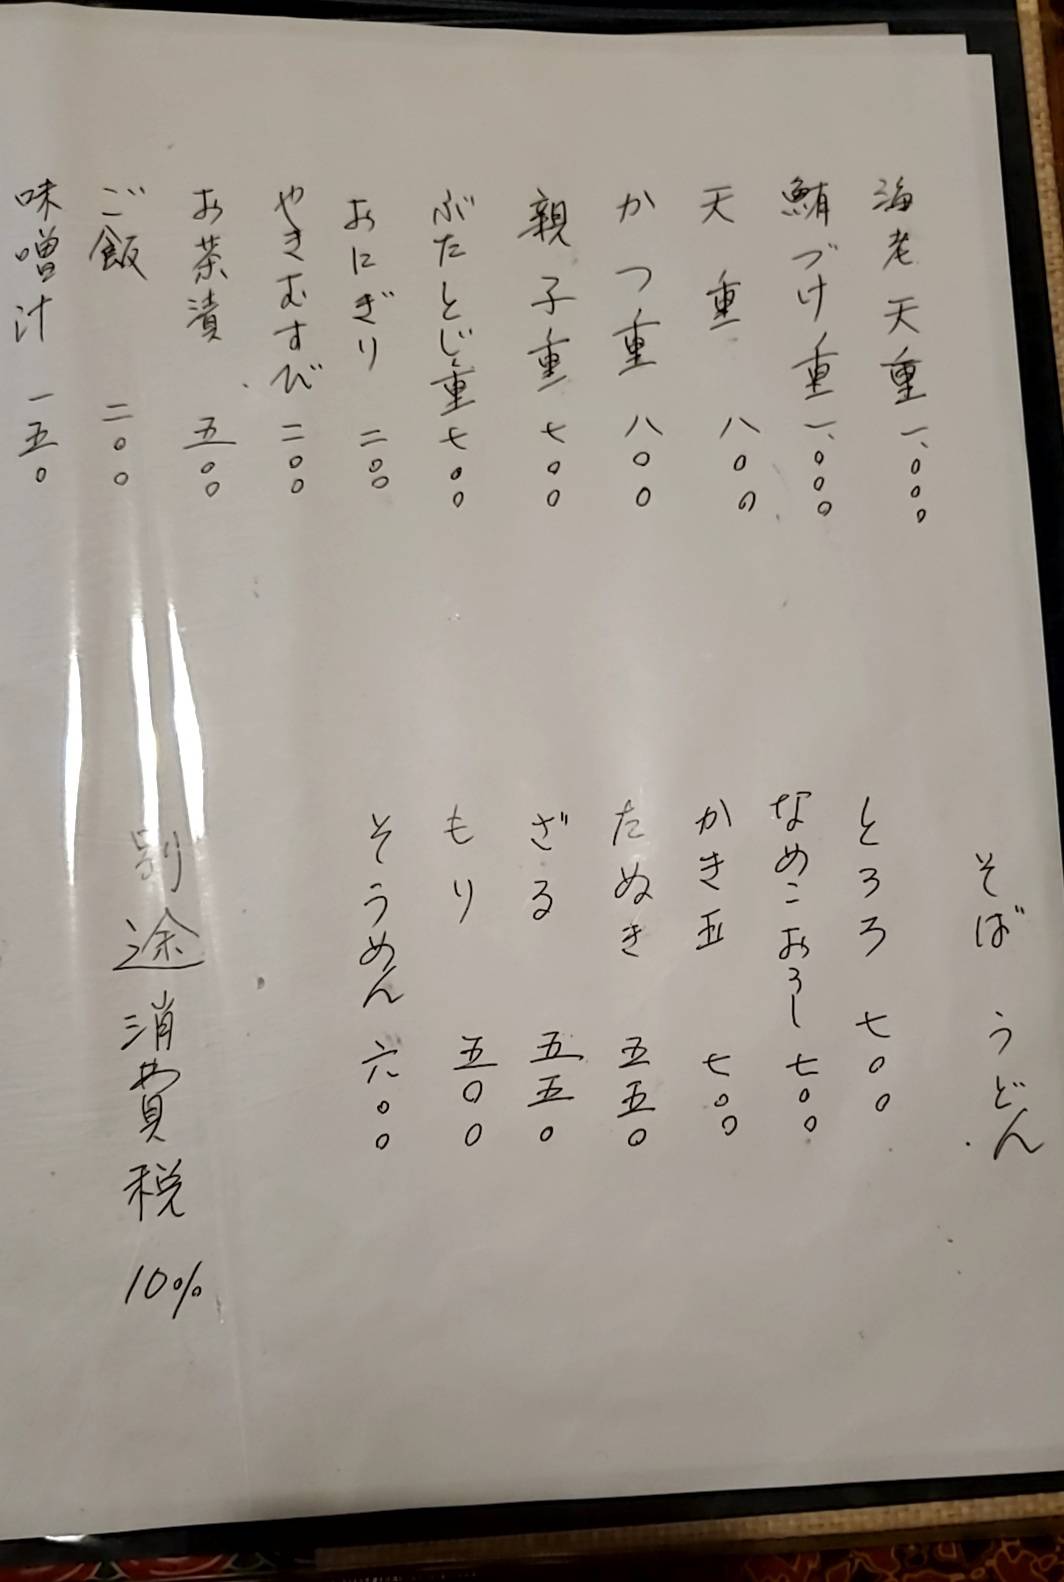 海老天重 一、〇〇〇
鮪づけ重 一、〇〇〇
天重 八〇〇
かつ重 八〇〇
親子重 七〇〇
ぶたとじ重 七〇〇
おにぎり 二〇〇
やきむすび 二〇〇
お茶漬 五〇〇
ご飯 二〇〇
味噌汁 一五〇
そば うどん
とろろ 七〇〇
なめこおろし 七〇〇
かき玉 七〇〇
たぬき 五五〇
ざる 五五〇
もり 五〇〇
そうめん 六〇〇
別途消費税 10%